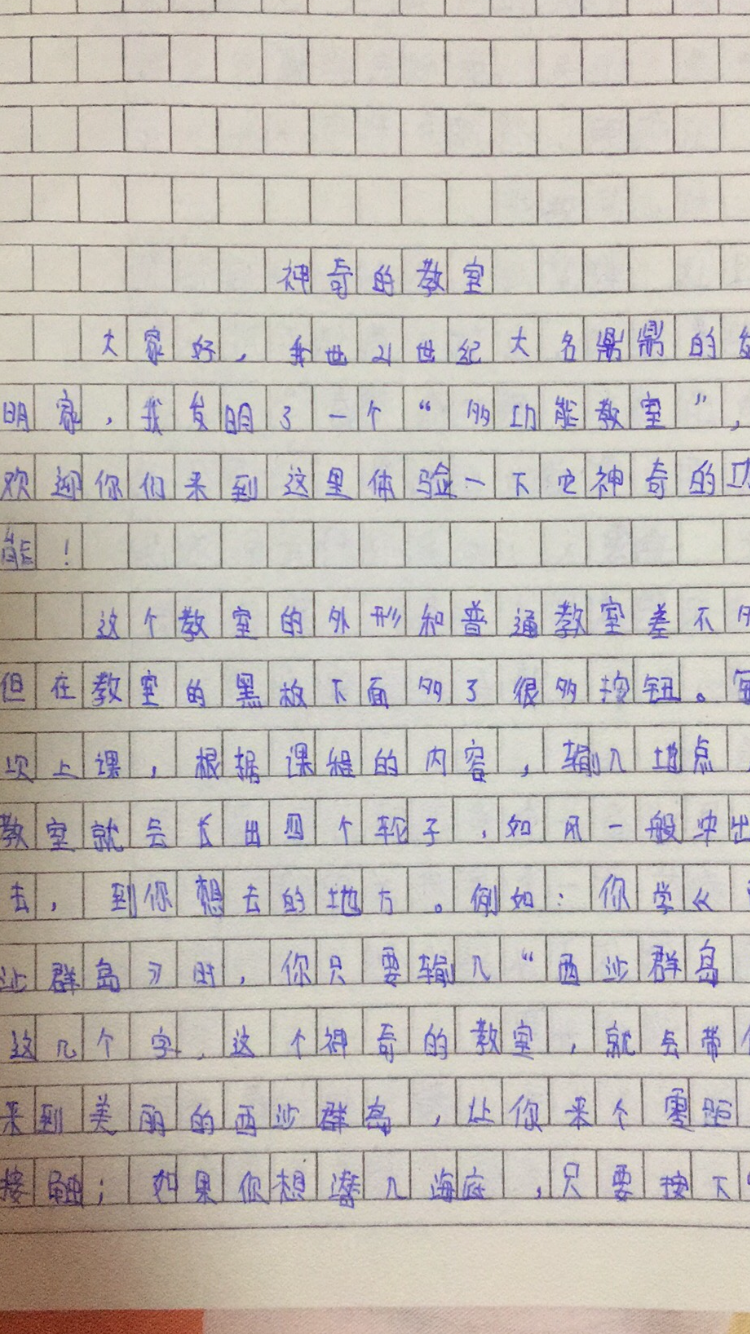 神奇的教室
大家好，我也21世纪大名鼎鼎的发
明家，我发明了一个“多功能教室”，
欢迎你们来到这里体验一下它神奇的功
能！
这个教室的外形和普通教室差不多
但在教室的黑板下面多了很多按钮。每
次上课，根据课程的内容，输入地点，
教室就会长出四个轮子，如风一般冲出
去，到你想去的地方。例如：你学《
沙群岛》时，你只要输入“西沙群岛
这几个字，这个神奇的教室，就会带你
来到美丽的西沙群岛，让你来个零距
接触；如果你想潜入海底，只要按下“